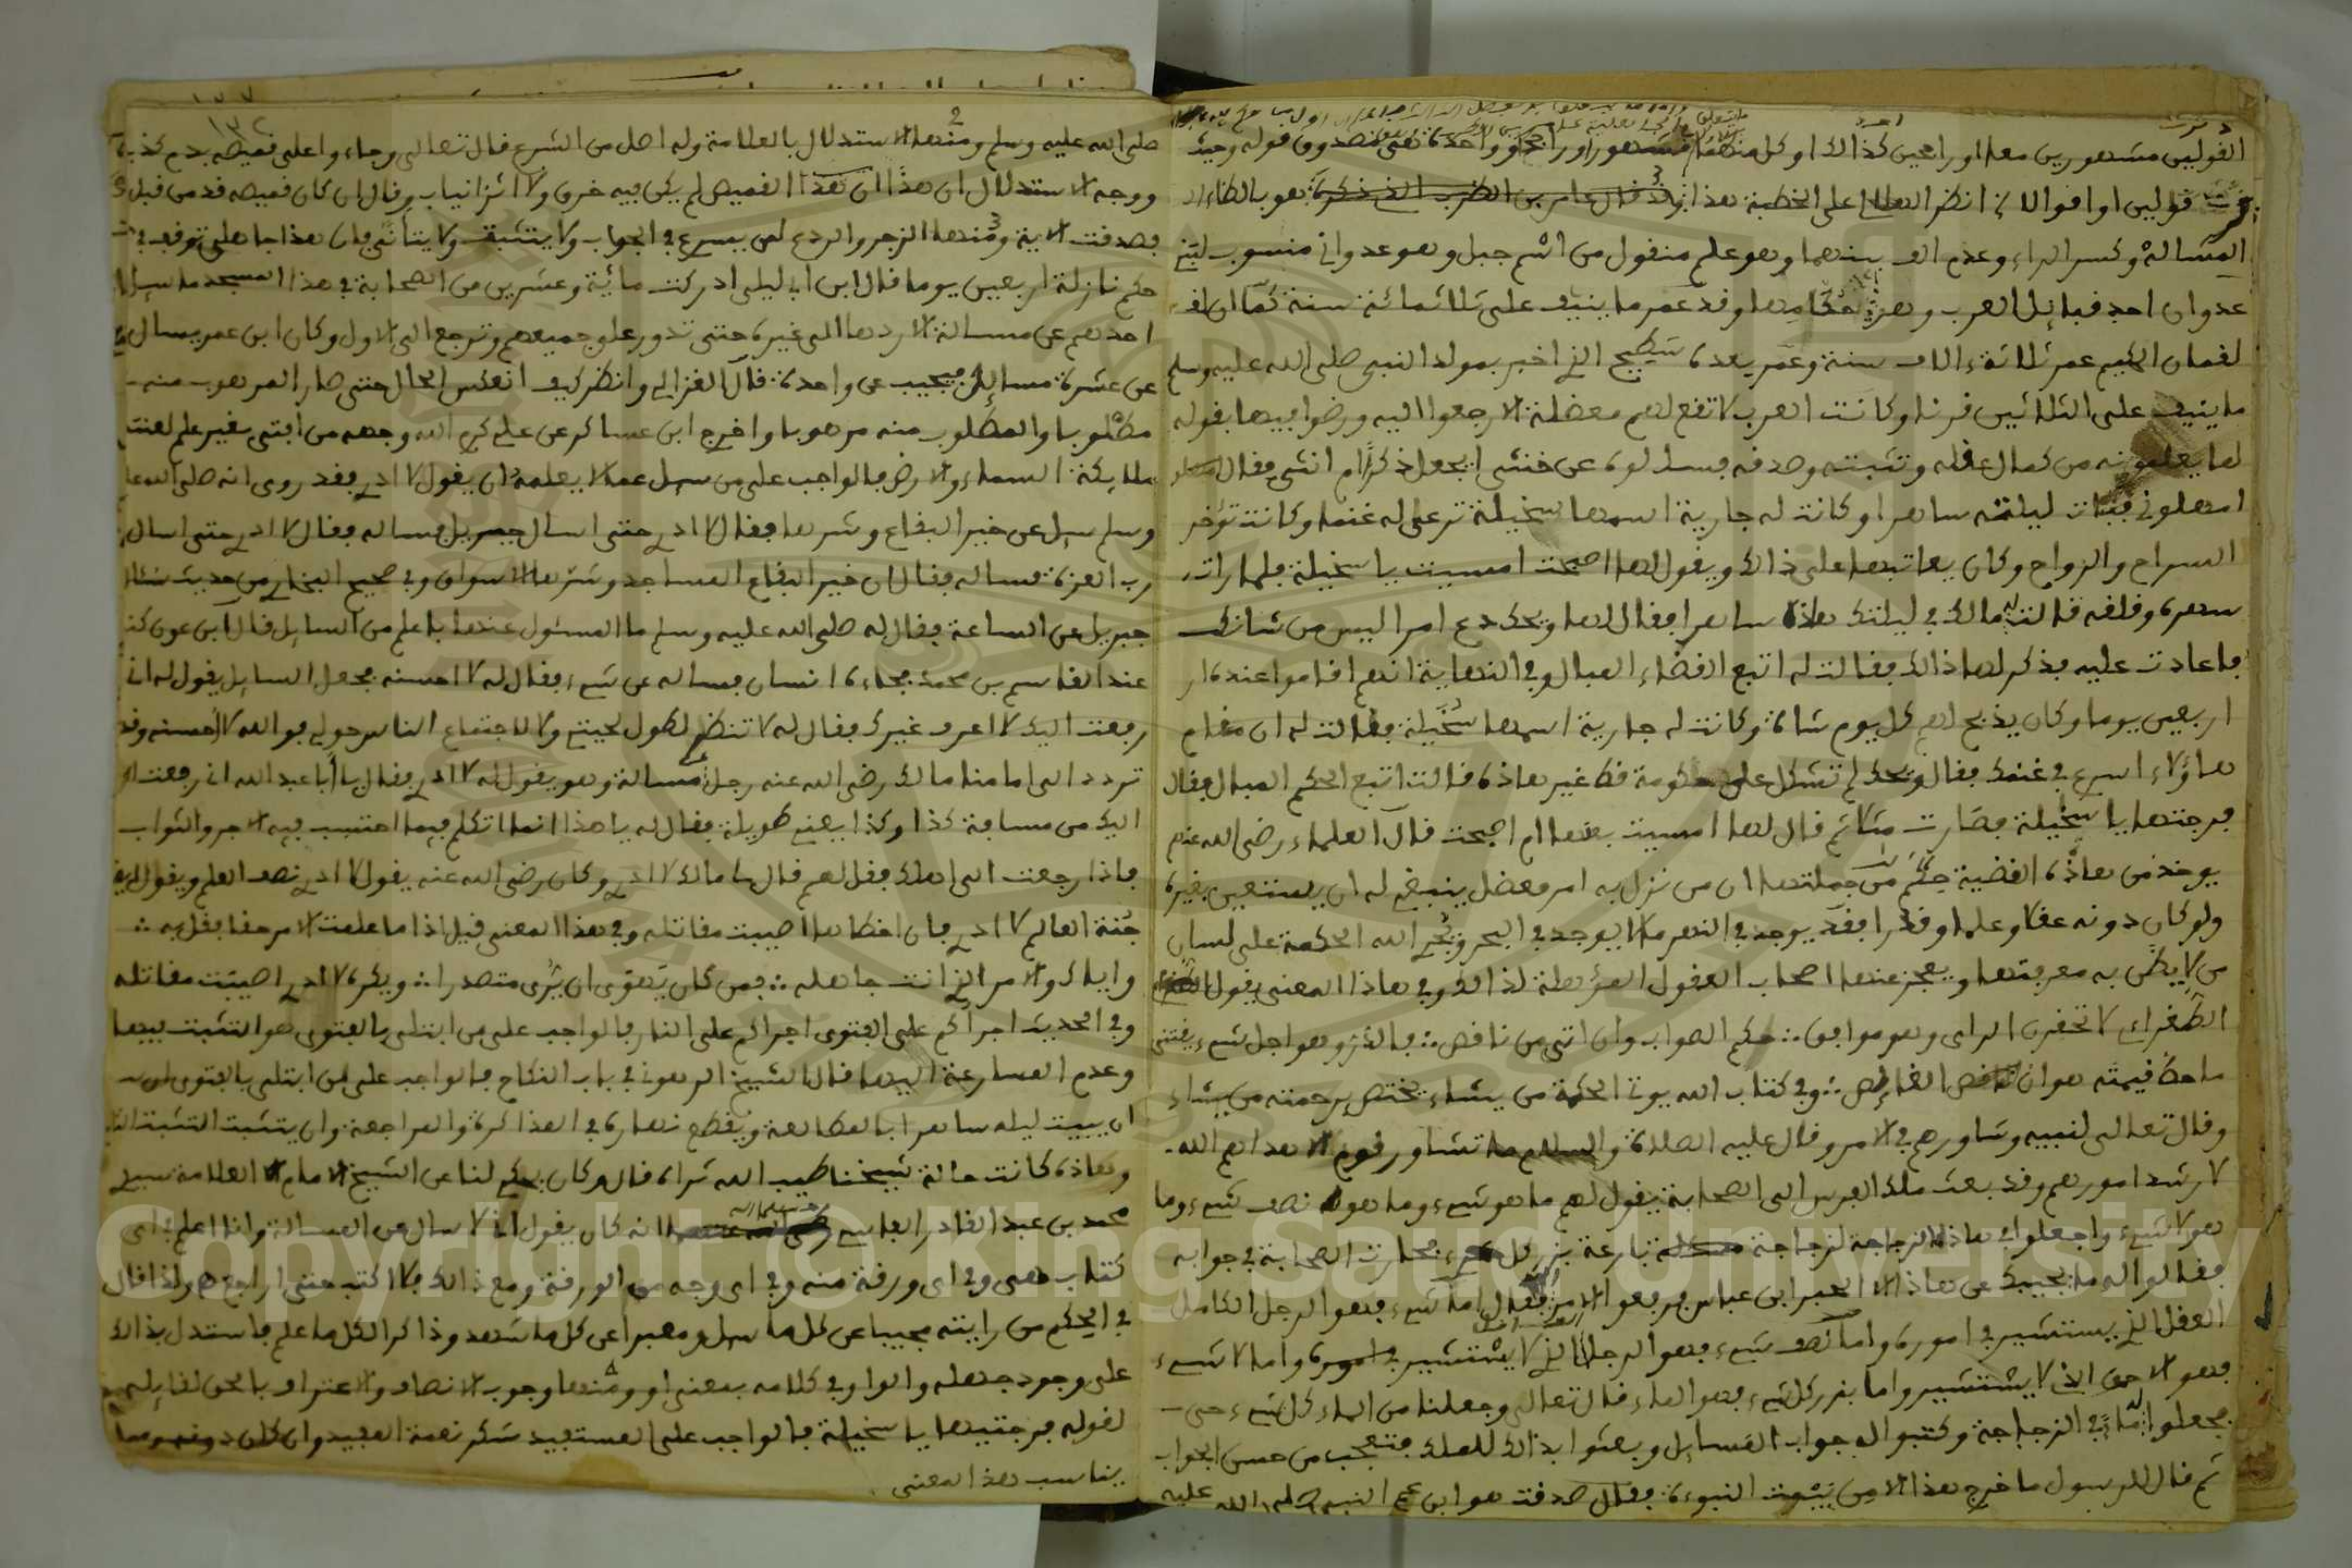 القوليين مشهورين معا اوراجحين كذالك او كل منهما مشهورا وراجحا وواحدة
قولين او اقوالا انظر العلماء على الخطبة هذا وقد قال عامر بن الظرب الذي ذكره هو بالظاء
المشالة وكسر الراء وعدم الف بينهما وهو علم منقول من اسم جبل وهو عدواني منسوب
عدوان احد قبايل العرب وهو حكامها وقد عمر ما ينيف على ثلاثمائة سنة كما ان
لقمان الحكيم عمر ثلاثة الاف سنة وعمر بعده سطيح الذي اخبر بمولد النبي صلى الله عليه وسلم
ما ينيف على الثلاثين قرنا وكانت العرب لا تقع لهم معضلة الا رجعوا اليه ورضوا فيها بقوله
لما يعلمونه من كمال عقله وتثبته وصدقه فسالوه عن خنثى ايجعل ذكرا ام انثى فقال
امهلوني فبات ليلته ساهرا وكانت له جارية اسمها سخيلة ترعى له غنما وكانت تؤخر
السراح والرواح وكان يعاتبها على ذالك ويقول لها اصبحت امسيت يا سخيلة فلما رات
سهره وقلقه قالت مالك في ليلتك هاذه ساهرا فقال لها ويحك دع امرا ليس من شانك
فاعادت عليه فذكر لها ذالك فقالت له اتبع القضاء المبال وفي النهاية انهم اقاموا عنده
اربعين يوما وكان يذبح لهم كل يوم شاة وكانت له جارية اسمها سخيلة فقالت له ان مقام
هاؤلاء اسرع في غنمك فقال ويحك لم تشكل علي حكومة قط غير هاذه قالت اتبع الحكم المبال فقال
فرجتها يا سخيلة فصارت مثلا ثم قال لها امسيت بعدها ام اصبحت قال العلماء رضي الله عنهم
يوخذ من هاذه القضية حكم من جملتها ان من نزل به امر معضل ينبغي له ان يستعين بغيره
ولو كان دونه عقلا وعلما وقدرا فقد يوجد في النهر ما لا يوجد في البحر ويجر الله الحكمة على لسان
من لا يظن به معرفتها ويعجز عنها اصحاب العقول المؤهلة لذالك وفي هاذا المعنى يقول
الطغراءي لا تحقرن الراي وهو موافق حكم الصواب وان اتى من ناقص فالدر وهو اجل شيء يقتنى
ماحط قيمته هوان الغايص وفي كتاب الله يوتي الحكمة من يشاء يختص برحمته من يشاء
وقال تعالى لنبيه وشاورهم في الامر وقال عليه الصلاة والسلام ما تشاور قوم الا هداهم الله
لارشد امورهم وقد بعث ملك الفرس الى الصحابة يقول لهم ما هو شيء وما هو نصف شيء وما
هو لا شيء واجعلوا في هاذه الزجاجة لزجاجة فارغة بزر كل شيء فحارت الصحابة في جوابه
فقالوا له ما يجيبك عن هاذا الا الحبر ابن عباس فرفعوا الامر فقال اما شيء فهو الرجل الكامل
العقل الذي يستشير في اموره واما نصف شيء فهو الرجل الذي لا يستشير في اموره واما لا شيء
فهو الاحمق الذي لا يستشير واما بزر كل شيء فهو الماء قال تعالى وجعلنا من الماء كل شيء حي
فجعلوا ماء في الزجاجة وكتبوا له جواب المسايل وبعثوا بذالك للملك فتعجب من حسن الجواب
ثم قال للرسول ما خرج هذا الا من بيت النبوءة فقال صدقت هو ابن عم النبي صلى الله عليه
صلى الله عليه وسلم ومنها الاستدلال بالعلامة وله اصل من الشرع قال تعالى وجاءوا على قميصه بدم كذب
ووجه الاستدلال ان هذا ان هذا القميص لم يكن فيه خرق ولا اثر انياب وقال ان كان قميصه قد من قبل
فصدقت الاية ومنها الزجر والردع لمن يسرع في الجواب ولا يتثبت ولا يتانى فان هذا جاهلي توقف في
حكم نازلة اربعين يوما قال ابن ابي ليلى ادركت مائة وعشرين من الصحابة في هذا المسجد ما سيل
احدهم عن مسالة الا ردها الى غيره حتى تدور على جميعهم وترجع الى الاول وكان ابن عمر يسال
عن عشرة مسايل فيجيب عن واحدة قال الغزالي وانظر كيف انعكس الحال حتى صار المرهوب منه
مطلوبا والمطلوب منه مرهوبا واخرج ابن عساكر عن علي كرم الله وجهه من افتى بغير علم لعنته
ملايكة السماء والارض فالواجب على من سيل عما لا يعلمه ان يقول لا ادري فقد روي انه صلى الله عليه
وسلم سيل عن خير البقاع وشرها فقال لا ادري حتى اسال جبريل فساله فقال لا ادري حتى اسال
رب العزة فساله فقال ان خير البقاع المساجد وشرها الاسواق وفي صحيح البخاري من حديث
جبريل عن الساعة فقال له صلى الله عليه وسلم ما المسئول عنها باعلم من السايل قال ابن عون كنت
عند القاسم بن محمد فجاءه انسان فساله عن شيء فقال له لا احسنه فجعل السايل يقول له اني
رفعت اليك لا اعرف غيرك فقال له لا تنظر لطول لحيتي ولا لاجتماع الناس حولي فوالله لا احسنه وقد
تردد الى امامنا مالك رضي الله عنه رجل في مسالة وهو يقول له لا ادري فقال يا ابا عبد الله اني رفعت
اليك من مسافة كذا وكذا يعني طويلة فقال له يا هذا انما اتكلم فيما احتسب فيه الاجر والثواب
فاذا رجعت الى اهلك فقل لهم قال مالك لا ادري وكان رضي الله عنه يقول لا ادري نصف العلم ويقول
جنة العالم لا ادري فان اخطاها اصيبت مقاتله وفي هذا المعنى قيل اذا ما علمت الامر حقا فقل به
واياك والامر الذي انت جاهله فمن كان يهوى ان يرى متصدرا ويكره لا ادري اصيبت مقاتله
وفي الحديث اجراكم على الفتوى اجراكم على النار فالواجب على من ابتلي بالفتوى هو التثبت فيها
وعدم المسارعة اليها قال الشيخ الرهوني في باب النكاح فالواجب على من ابتلي بالفتوى
ان يبيت ليله ساهرا بالمطالعة ويقطع نهاره في المذاكرة والمراجعة وان يتثبت التثبت
وهاذه كانت حالة شيخنا طيب الله ثراه قال وكان يحكي لنا عن الشيخ الامام العلامة سيدي
محمد بن عبد القادر الفاسي انه كان يقول اني لا سال عن المسالة وانا اعلم في اي
كتاب هي وفي اي ورقة منه وفي اي وجه من الورقة ومع ذالك فلا اكتب حتى اراجعها ولذا قال
في الحكم من رايته مجيبا عن كل ما سيل ومعبرا عن كل ما شهد وذاكرا لكل ما علم فاستدل بذالك
على وجود جهله والواو في كلامه بمعنى او ومنها وجوب الانصاف والاعتراف بالحق لقايله
لقوله فرجتيها يا سخيلة فالواجب على المستفيد شكر نعمة المفيد وان كان دونه
يناسب هذا المعنى
Copyright © King Saud University